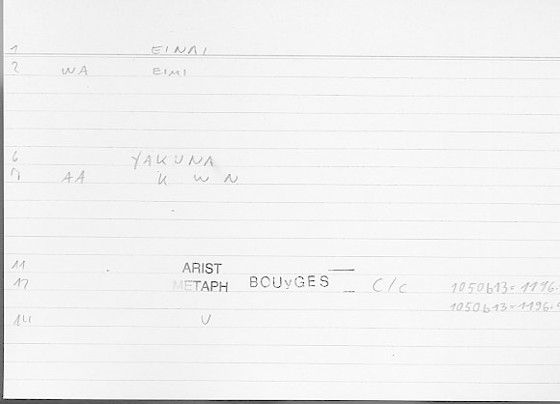 1 EINAI
2 WA EIMI
6 YAKUNA
7 AA K W N
11 ARIST
12 METAPH BOUyGES C/C 1050b13=1196.
1050b13=1196.
14 U